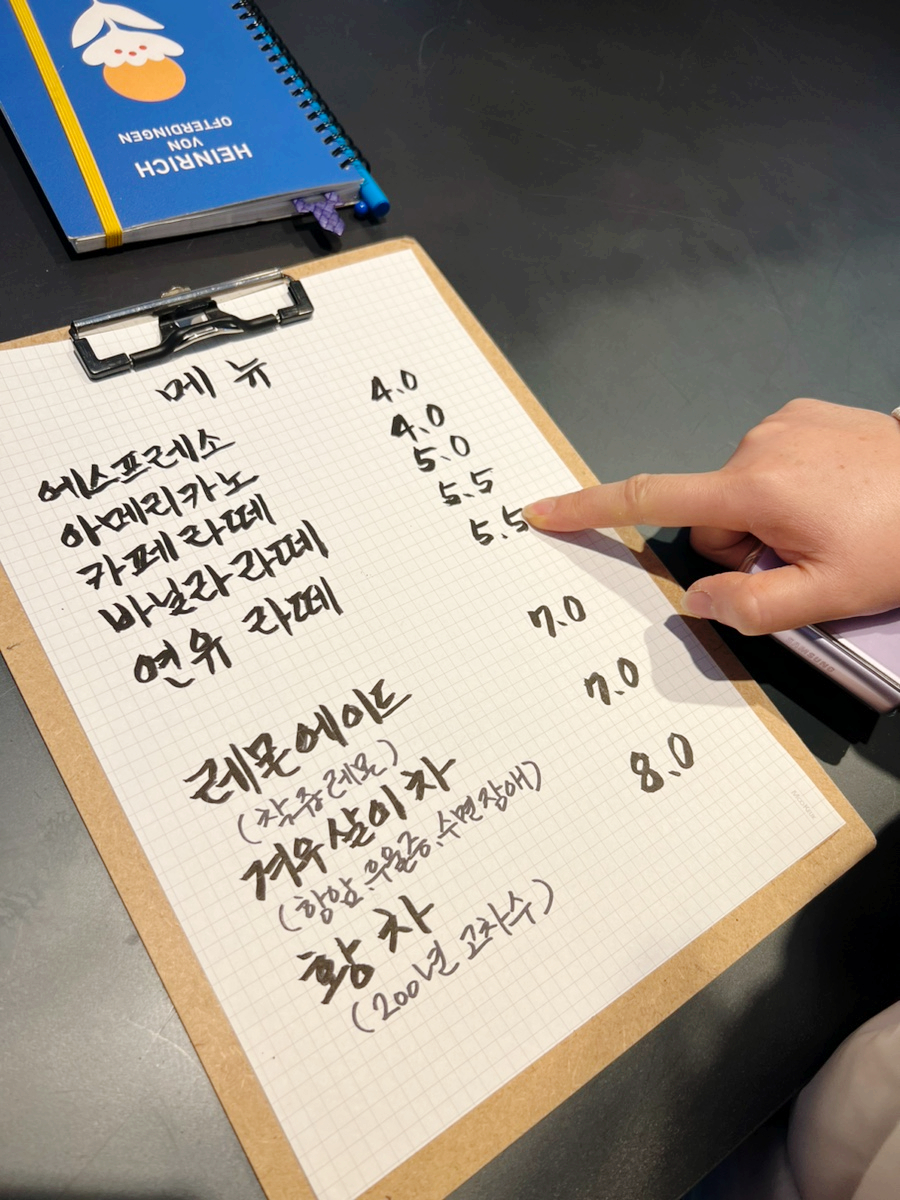 HEINRICH
VON
OFTERDINGEN
메뉴
에스프레소 4.0
아메리카노 4.0
카페라떼 5.0
바닐라라떼 5.5
연유 라떼 5.5
레몬에이드 7.0
(착즙레몬)
겨우살이차 7.0
(항암.우울증.수면장애)
황차 8.0
(200년 고차수)
SAMSUNG